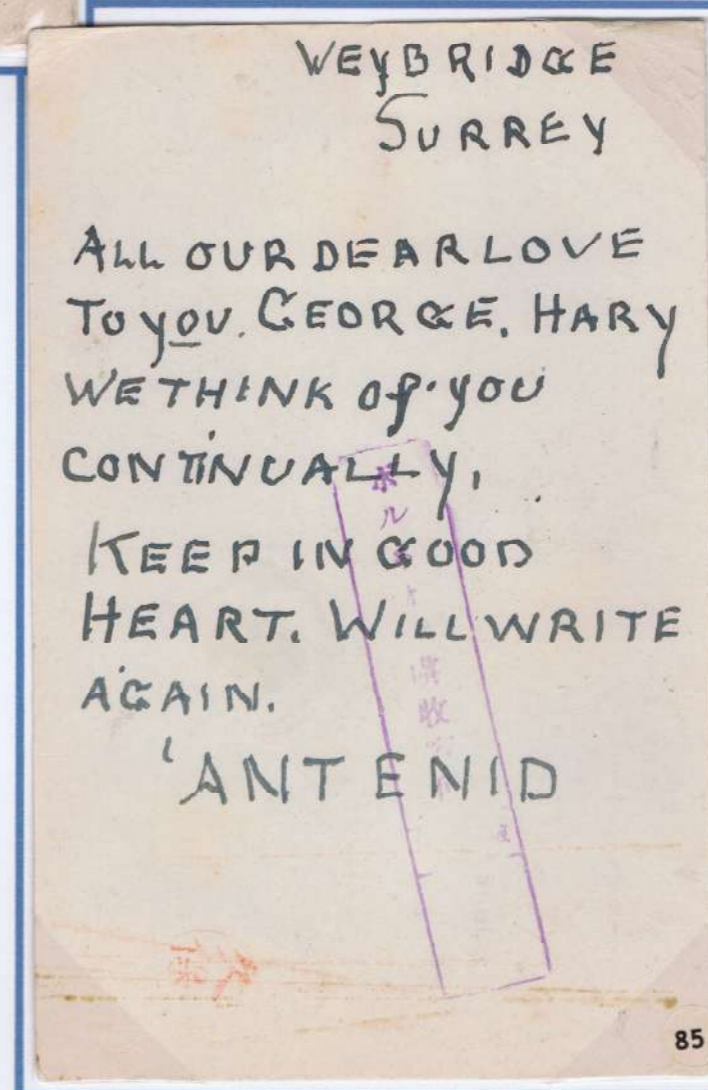 WEYBRIDGE
SURREY
ALL OUR DEAR LOVE
TO YOU. GEORGE, HARY
WE THINK OF YOU
CONTINUALLY,
KEEP IN GOOD
HEART. WILL WRITE
AGAIN.
'ANT ENID
ボル
収
85